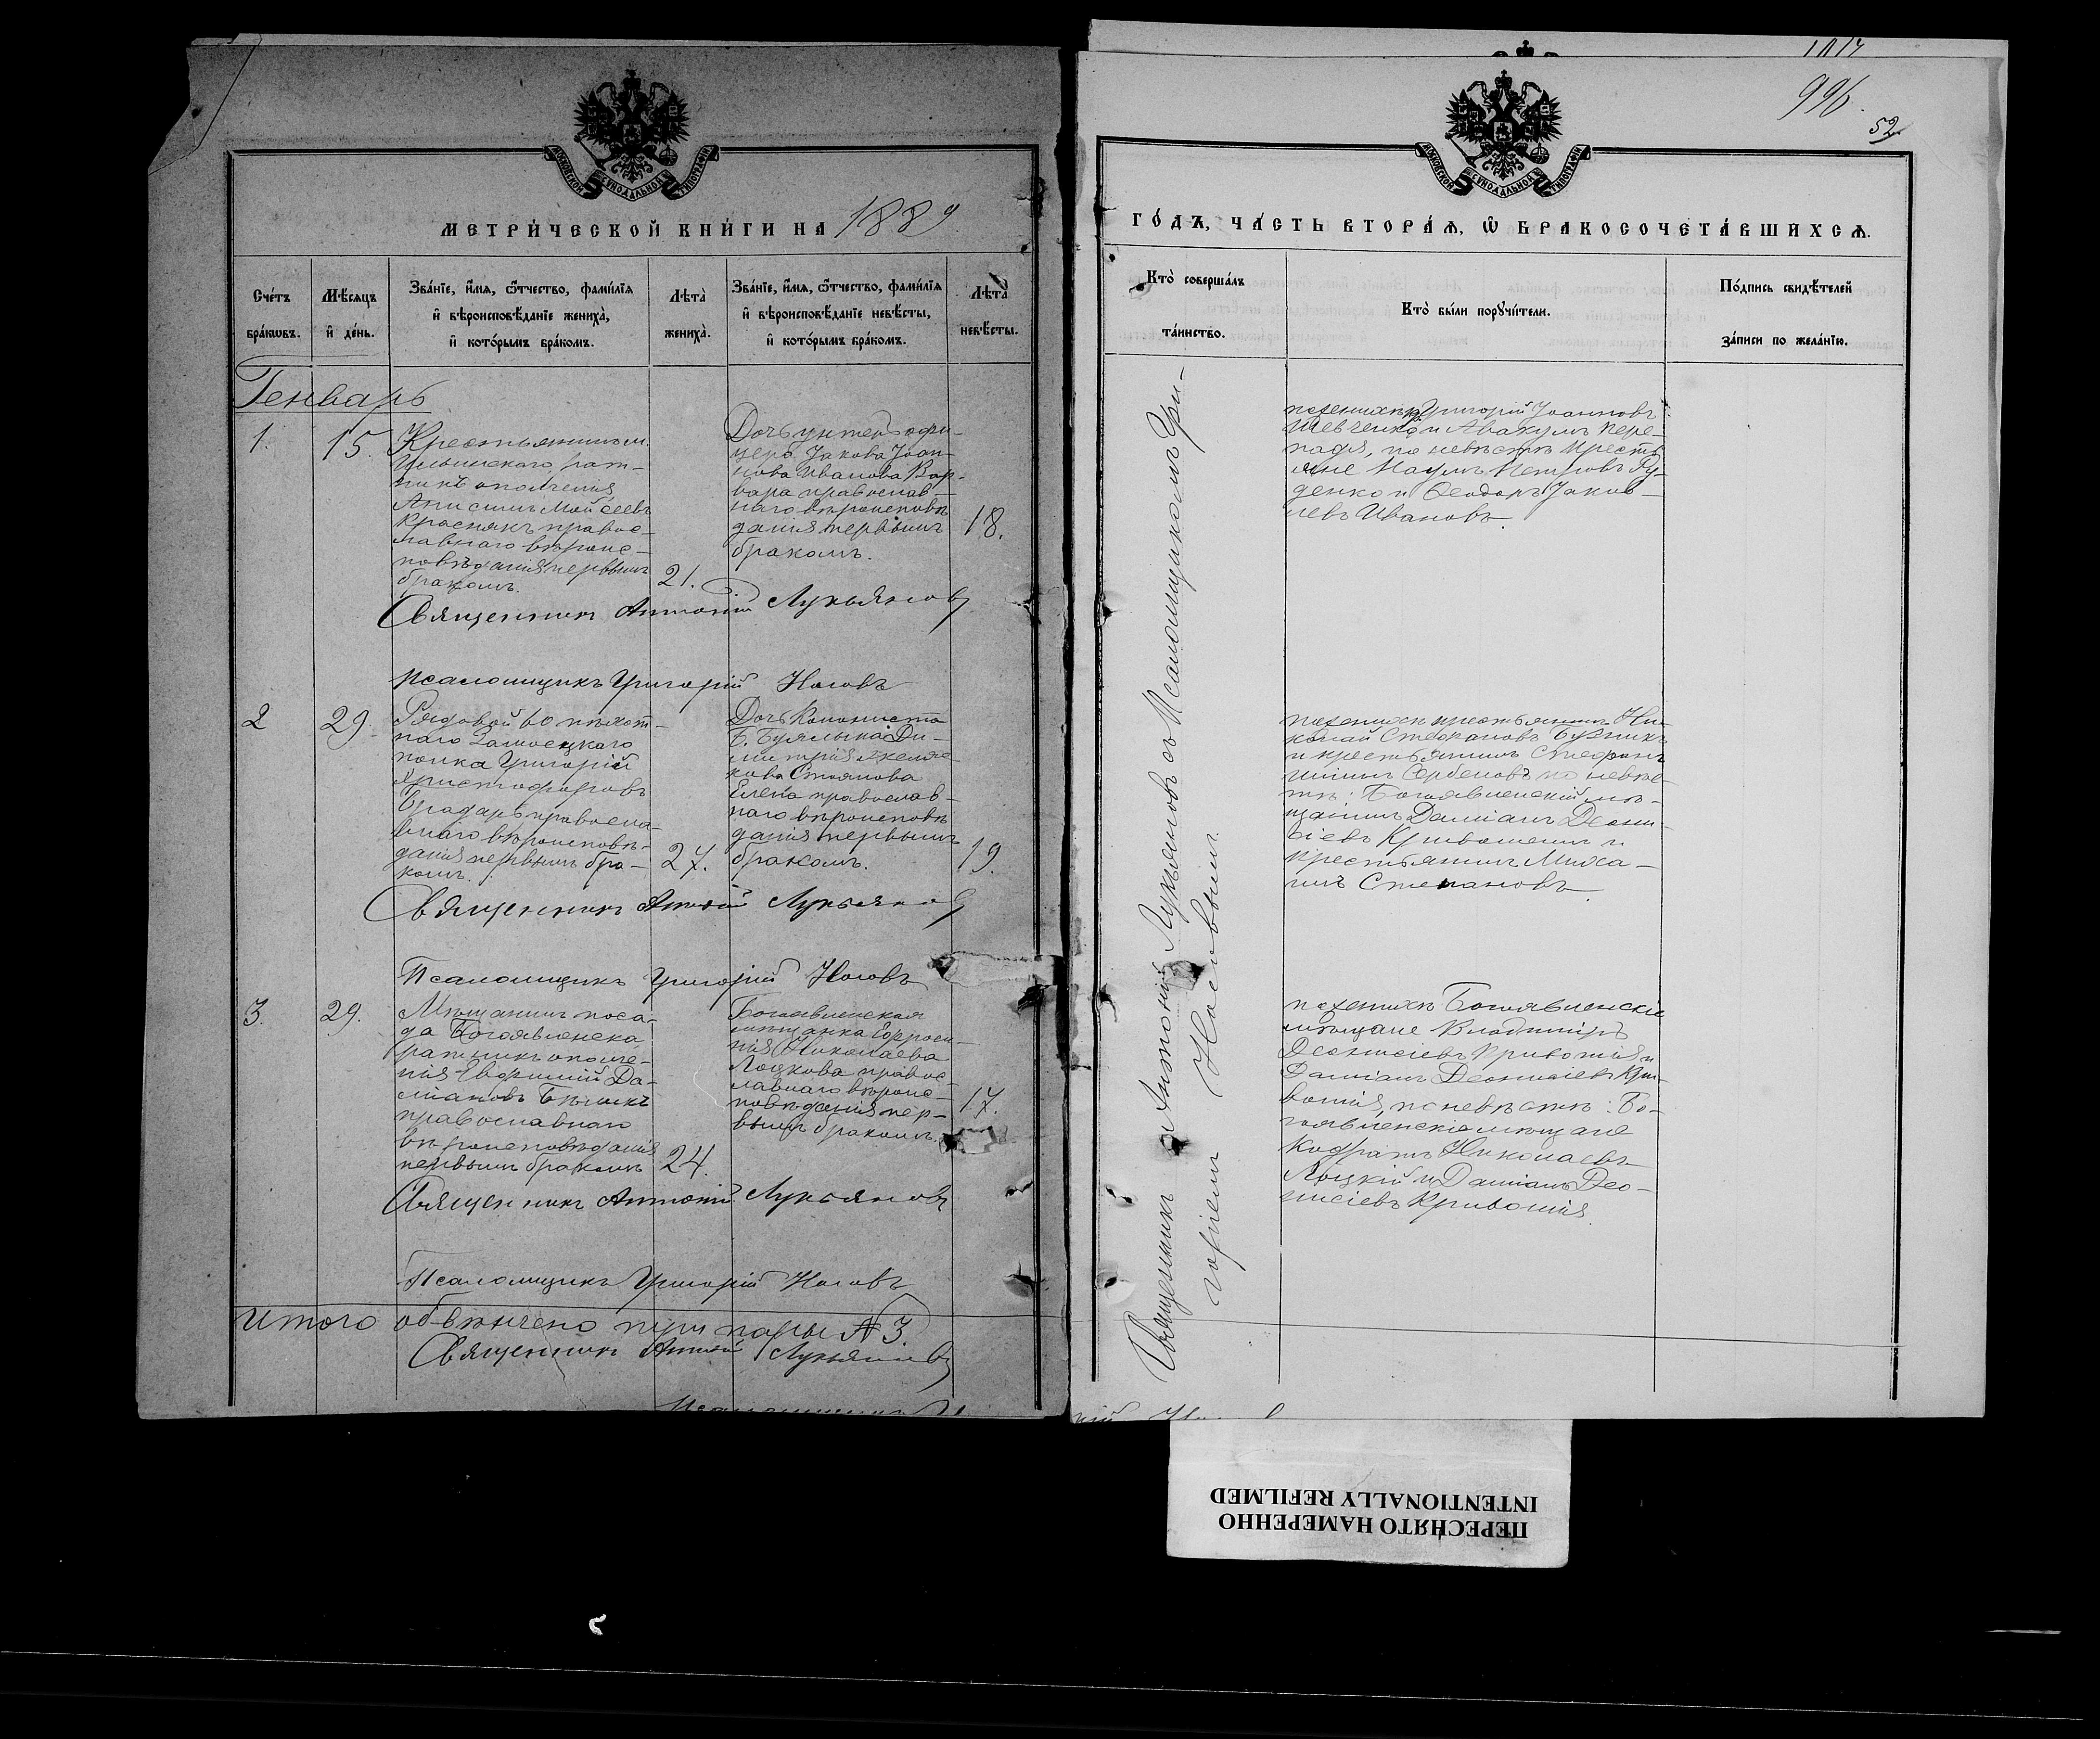 МОСКОВСКОЙ СѴНОДАЛЬНОЙ ТИПОГРАФІИ
МЕТРИ́ЧЕСКОЙ КНИ́ГИ НА 1889
Сче́тъ бра́кѡвъ.
Мѣ́сѧцъ и҆ де́нь.
Зва́нїе, и҆́мѧ, ѻ҆́тчество, фами́лїѧ
и҆ вѣроисповѣ́данїе жениха̀,
и҆ кото́рымъ бра́комъ.
Лѣта̀ жениха̀.
Зва́нїе, и҆́мѧ, ѻ҆́тчество, фами́лїѧ
и҆ вѣроисповѣ́данїе невѣ́сты,
и҆ кото́рымъ бра́комъ.
Лѣта̀ невѣ́сты.
Генварь
1.
15.
Крестьянинъ м.
Ильинскаго, рат-
никъ ополченія
Анисимъ Мойсеевъ
Краснякъ правос-
лавнаго вѣроис-
повѣданія первымъ
бракомъ.
21.
Дочь унтеръ офи-
цера Іакова Іоан-
нова Иванова Вар-
вара православ-
наго вѣроисповѣ
данія первымъ
бракомъ.
18.
Священникъ Антоній Лукьяновъ
Псаломщикъ Григорій Носовъ
2
29.
Рядовой 60 пѣхот-
наго Замосцкаго
полка Григорій
Христофоровъ
православ-
наго вѣроисповѣ-
данія первымъ бра-
комъ.
27.
Дочь Колониста
Б. Буялыка Ди-
митрія
Стоянова
Елена православ-
наго вѣроисповѣ
данія первымъ
бракомъ.
19.
Священникъ Антоній Лукьяновъ
Псаломщикъ Григорій Носовъ
3.
29.
Мѣщанинъ поса-
да Богоявленска
ратникъ ополче-
нія Евфимій Да-
міановъ
православнаго
вѣроисповѣданія
первымъ бракомъ
24.
Богоявленская
мѣщанка Ефроси-
нія Николаева
Лоцкова правос-
лавнаго вѣроис-
повѣданія пер-
вымъ бракомъ.
17.
Священникъ Антоній Лукьяновъ
Псаломщикъ Григорій Носовъ
Итого обвѣнчено три пары № 3
Священникъ Антоній Лукьяновъ
996.
52
МОСКОВСКОЙ СѴНОДАЛЬНОЙ ТИПОГРАФІИ
ГО́ДЪ, ЧА́СТЬ ВТОРА́Ѧ, Ѡ҆ БРАКОСОЧЕТА́ВШИХСѦ.
Кто̀ соверша́лъ
та́инство.
Кто̀ бы́ли порꙋчи́тели.
По́дпись свидѣ́телей
за́писи по жела́нїю.
Священникъ Антоній Лукьяновъ съ Псаломщикомъ Гри-
горіемъ Носовымъ
по женихѣ Григорій Іоанновъ
Шевченко и Авакумъ Пере-
падя, по невѣстѣ крестъ
яне Наумъ Петровъ Гу-
денко и Ѳеодоръ Іаков-
левъ Ивановъ.
по женихѣ крестьянинъ Ни-
колай Стефановъ
и крестьянинъ Стефанъ
Сербеновъ по невѣс-
тѣ: Богоявленскій мѣ-
щанинъ Даміанъ Діони-
сіевъ и
крестьянинъ Миха-
илъ Степановъ.
по женихѣ Богоявленскіе
мѣщане Владиміръ
Діонисіевъ Кривошия и
Даміанъ Діонисіевъ Кри-
вошия, по невѣстѣ: Бо-
гоявленскіе мѣщане
Кодратъ Николаевъ
Лоцкій и Даміанъ Діо-
нисіевъ Кривошия.
ПЕРЕСНЯТО НАМЕРЕННО
INTENTIONALLY REFILMED